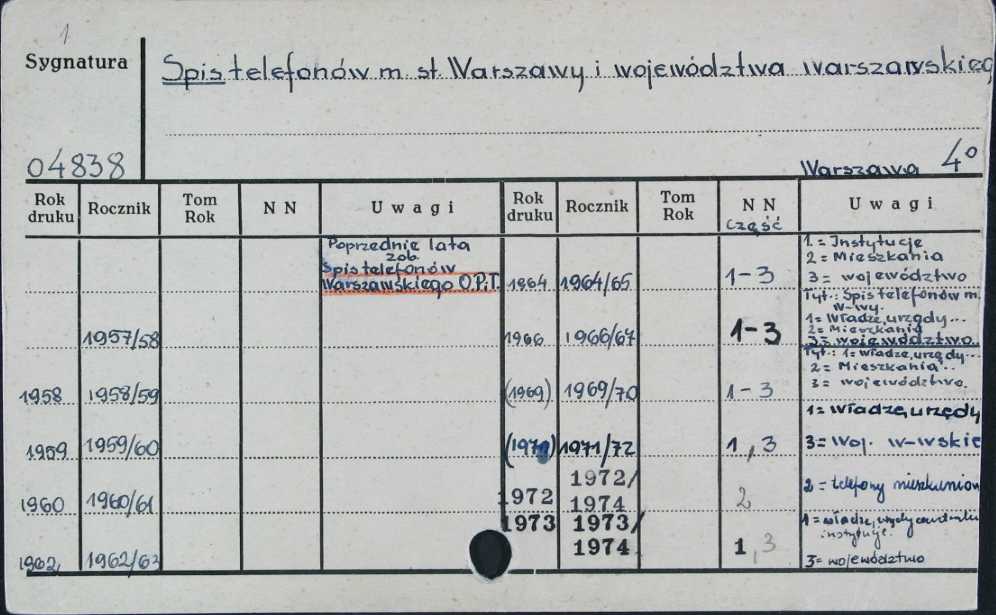 1
Sygnatura
Spis telefonów m. st. Warszawy i województwa warszawskieg
04838
Warszawa 4°
Rok druku | Rocznik | Tom Rok | N N | Uwagi | Rok druku | Rocznik | Tom Rok | N N część | Uwagi
Poprzednie lata
zob.
Spis telefonów
Warszawskiego O.P.i.T.
1957/58
1958 1958/59
1959 1959/60
1960 1960/61
1962 1962/63
1964 1964/65 1-3
1 = Instytucje
2 = Mieszkania
3 = województwo
1966 1966/67 1-3
Tyt.: Spis telefonów m.
W-wy.
1 = Władze, urzędy...
2 = Mieszkania
3 = województwo
(1969) 1969/70 1-3
Tyt.: 1 = Władze, urzędy...
2 = Mieszkania...
3 = województwo.
1971/72 1,3
1 = Władze, urzędy
3 = Woj. W-wskie
1972 1972/
1974 2
2 = telefony
1973 1973/
1974 1,3
1 = władze,
instytucje.
3 = województwo